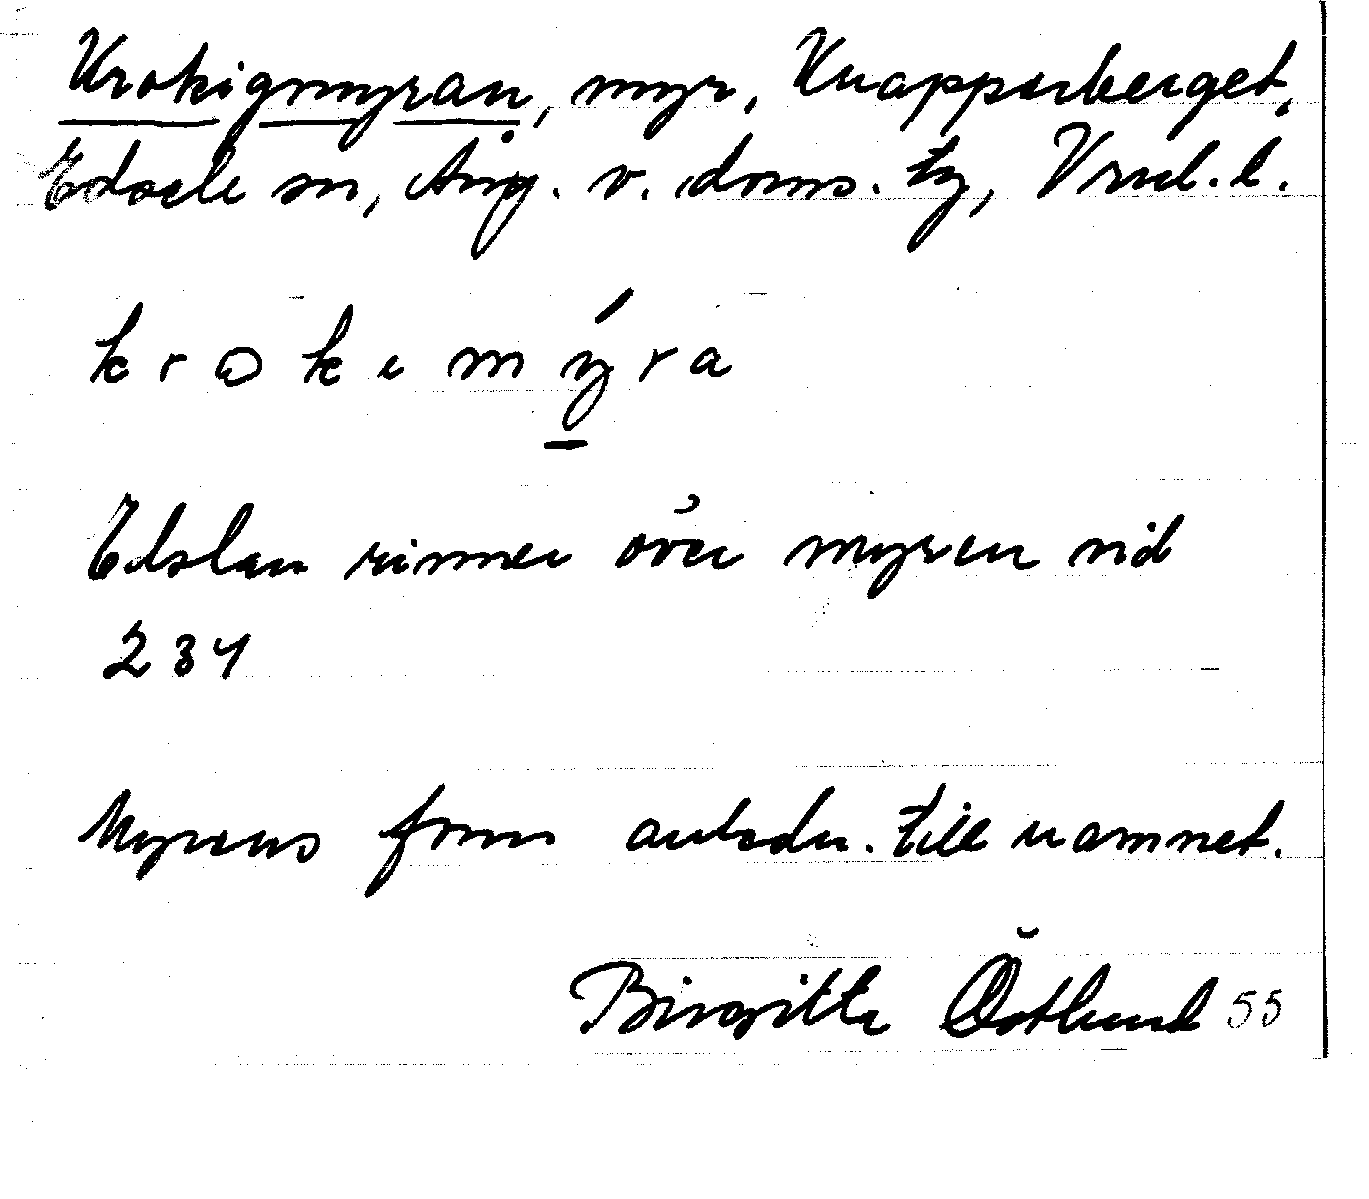 Krokigmyran, myr, Knapparberget,
Edsele sn, Ång. v. doms. tg, Vrnl. l.
krokemýra
Edslan rinner över myren vid
234
Myrens form anledn. till namnet.
Birgitta Östlund 55